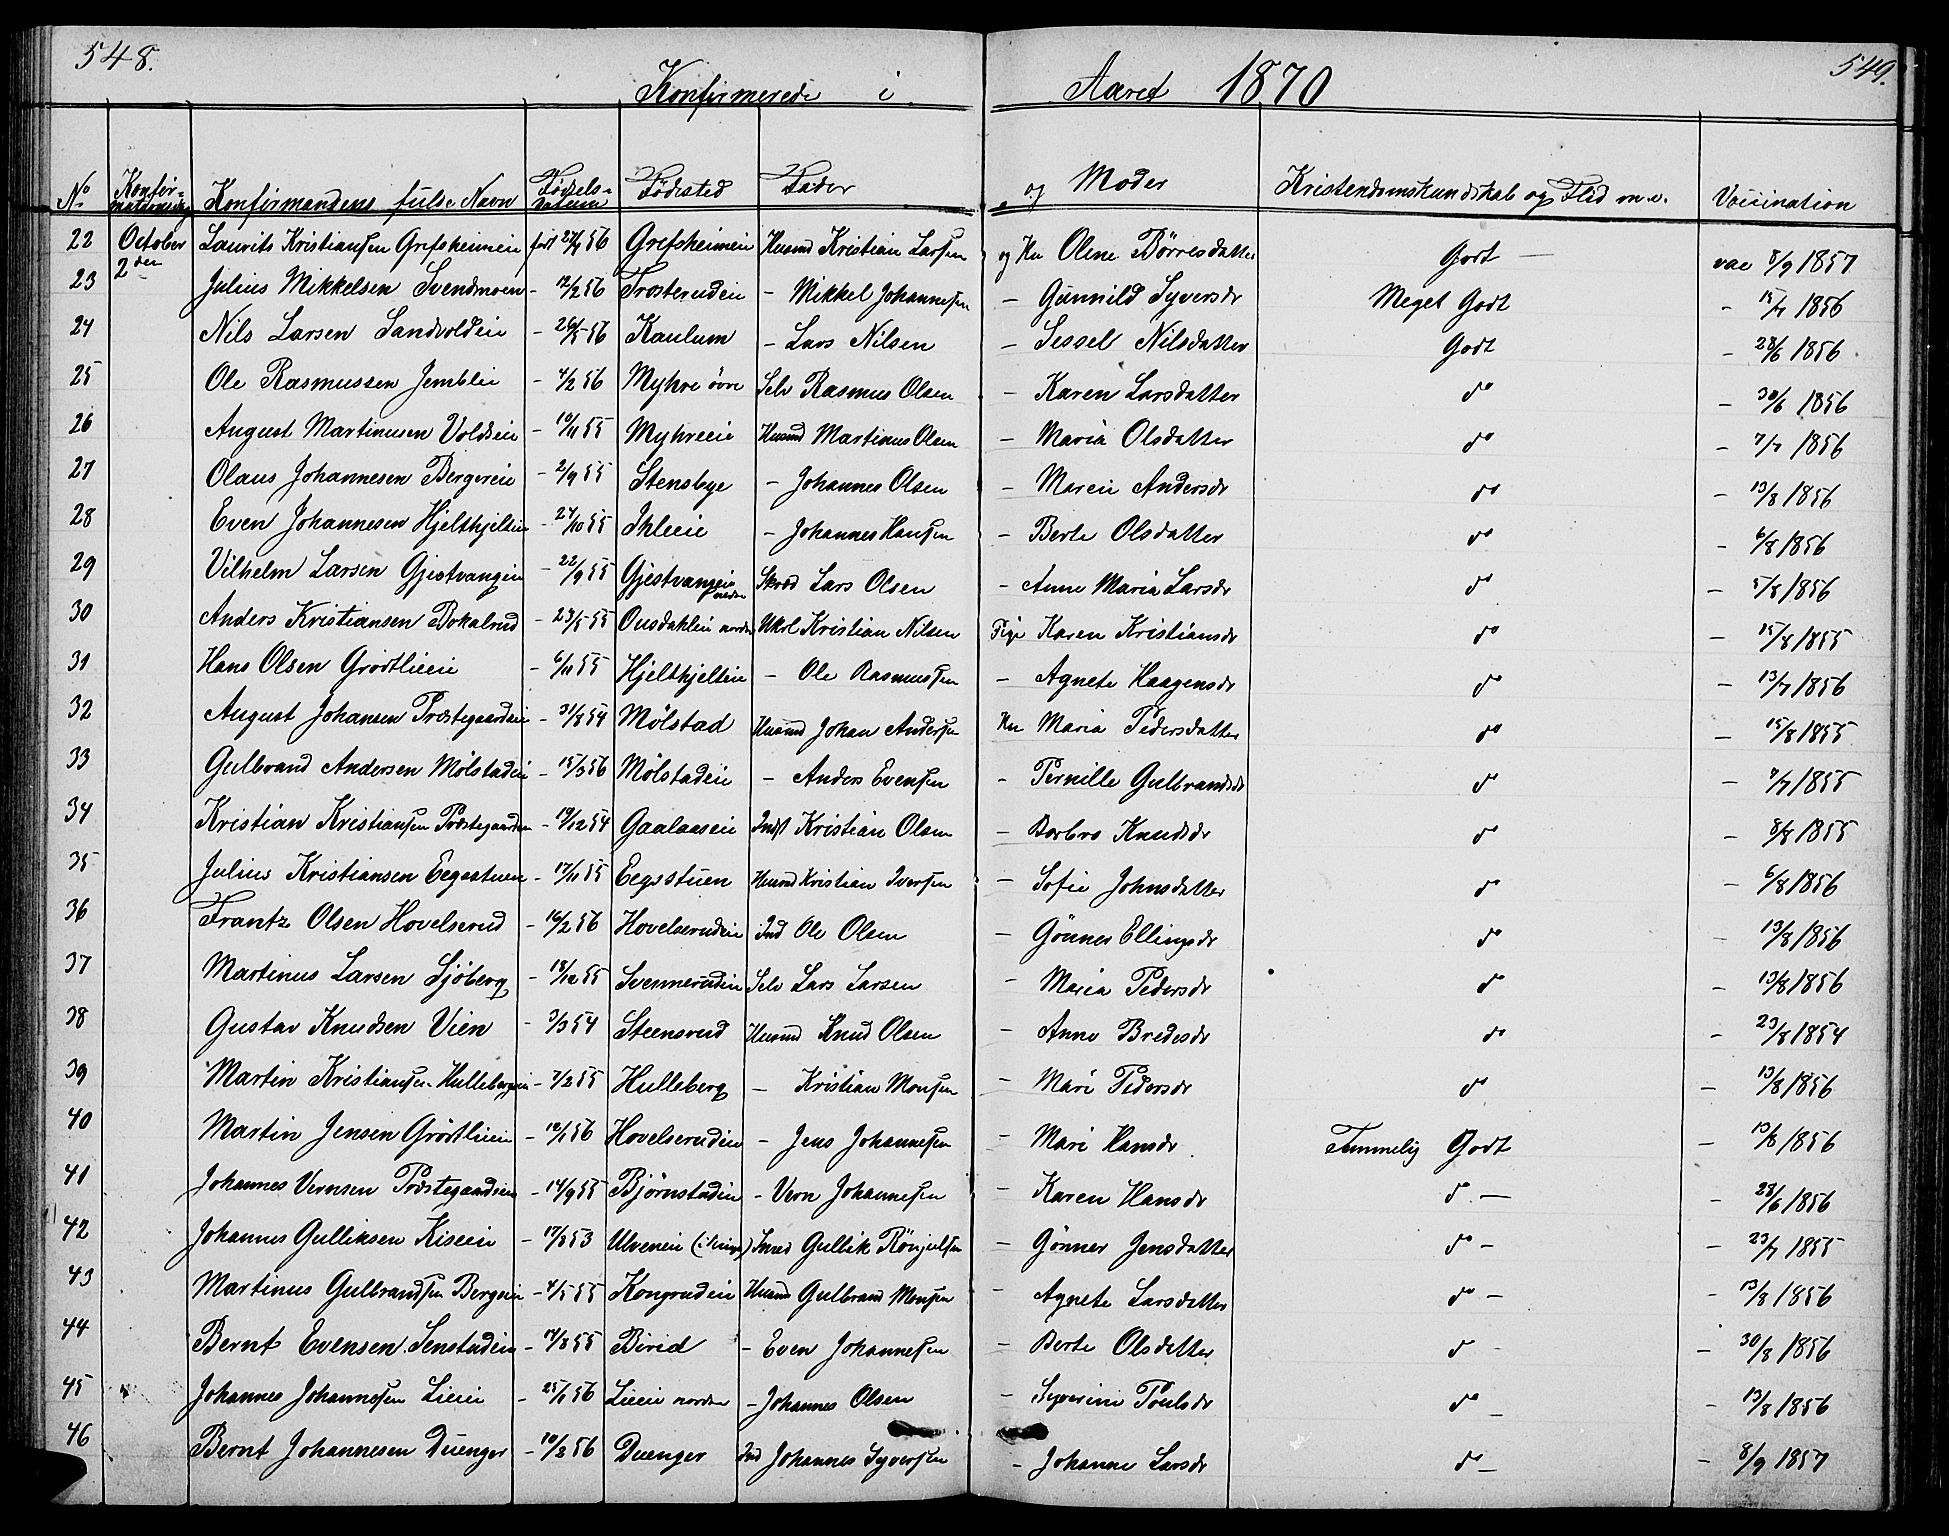 548. 549.
Konfirmerede i Aaret 1870
No Konfirmationsdag Konfirmandens fulde Navn Fødselsdatum Fødested Fader og Moder Kristendomskundskab og Flid m.v. Vaccination
22 October Laurits Kristiansen Grefsheimeie født 27/4 56 Grefsheimeie Husmd Kristian Larsen og Ku Olene Børresdatter Godt — vac 8/9 1857
2den
23 Julius Mikkelsen Svendmoen - 12/2 56 Trosterudeie - Mikkel Johannesen - Gunnild Syversdr Meget Godt - 15/7 1856
24 Nils Larsen Sandvoldeie - 26/5 56 Kaulum - Lars Nilsen - Sessel Nilsdatter Godt - 28/6 1856
25 Ole Rasmussen Jemblie - 4/2 56 Myhre øvre Selv Rasmus Olsen - Karen Larsdatter do - 30/6 1856
26 August Martinusen Voldeie - 10/11 55 Myhreeie Husmd Martinus Olsen - Maria Olsdatter do - 7/7 1856
27 Olaus Johannesen Bergereie - 2/9 55 Stensbye - Johannes Olsen - Maren Andersdr do - 13/8 1856
28 Even Johannesen Hjelthjelteie - 27/10 55 Ihleeie - Johannes Hansen - Berte Olsdatter do - 6/8 1856
29 Vilhelm Larsen Gjestvangeie - 22/9 55 Gjestvangeie nedre Skræd Lars Olsen - Anne Maria Larsdr do - 5/8 1856
30 Anders Kristiansen Bokalrud - 23/5 55 Ousdahleie nordre Ukrl Kristian Nilsen Pige Karen Kristiansdr do - 15/8 1855
31 Hans Olsen Grøtlieeie - 6/11 55 Hjelthjelteie - Ole Rasmussen - Agnete Haagensdr do - 13/7 1856
32 August Johansen Præstegaardseie - 31/8 54 Mølstad Husmd Johan Andersen Ku Maria Pedersdatter do - 15/8 1855
33 Gulbrand Andersen Mølstadeie - 15/3 56 Mølstadeie - Anders Evensen - Pernille Gulbrandsdr do - 7/7 1855
34 Kristian Kristiansen Præstegaardseie - 19/12 54 Gaalaaseie Indst Kristian Olsen - Barbro Knudsdr do - 8/8 1855
35 Julius Kristiansen Eegsstuen - 17/11 55 Eegsstuen Husmd Kristian Iversen - Sofie Johnsdatter do - 6/8 1856
36 Frantz Olsen Hovelserud - 16/2 56 Hovelserudeie Ind Ole Olsen - Gønner Ellingsdr do - 13/8 1856
37 Martinus Larsen Sjøberg - 18/12 55 Svennerudeie Selv Lars Larsen - Maria Pedersdr do - 13/8 1856
38 Gustav Knudsen Vien - 3/3 54 Steensrud Husmd Knud Olsen - Anne Bredesdr do - 23/8 1854
39 Martin Kristiansen Hullebergeie - 7/2 55 Hulleberg - Kristian Monsen - Mari Pedersdr do - 13/8 1856
40 Martin Jensen Grøtlieeie - 10/1 56 Hovelserudeie - Jens Johannesen - Mari Hansdr Temmelig Godt - 13/8 1856
41 Johannes Vernsen Præstegaardseie - 14/9 55 Bjørnstadeie - Vern Johannesen - Karen Hansdr do - - 28/6 1856
42 Johannes Gulliksen Kiseeie - 17/3 53 Ulveneie Gullik Rønjulsen - Gønner Jensdatter do - - 23/7 1855
43 Martinus Gulbrandsen Bergeie - 4/5 55 Kongrudeie Husmd Gulbrand Monsen - Agnete Larsdatter do - - 13/8 1856
44 Bernt Evensen Senstadeie - 14/3 55 Birid - Even Johannesen - Berte Olsdatter do - - 30/8 1856
45 Johannes Johannesen Lieeie - 25/1 56 Lieeie nordre - Johannes Olsen - Syverine Poulsdr do - - 13/8 1856
46 Bernt Johannesen Duenger - 10/3 56 Duenger Ind Johannes Syversen - Johanne Larsdr do - - 8/9 1857